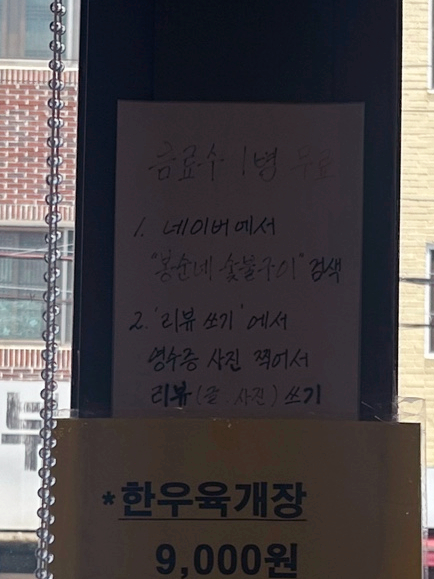 음료수 1병 무료
1. 네이버에서
"봉순네 숯불구이" 검색
2. '리뷰 쓰기'에서
영수증 사진 찍어서
리뷰 (글. 사진) 쓰기
*한우육개장
9,000원